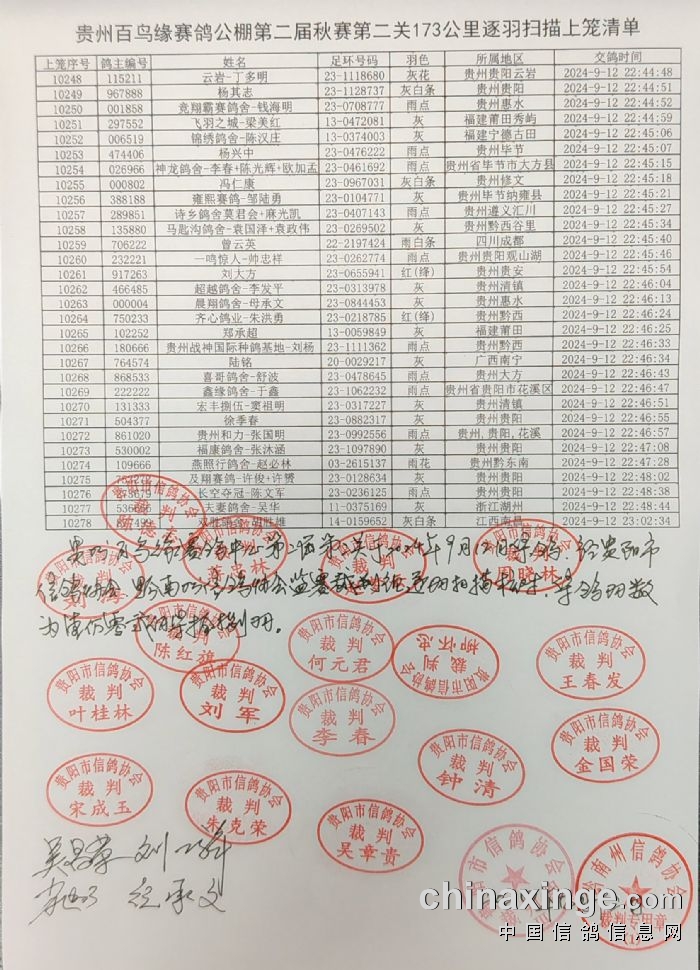 贵州百鸟缘赛鸽公棚第二届秋赛第二关173公里逐羽扫描上笼清单
上笼序号 鸽主编号 姓名 足环号码 羽色 所属地区 交鸽时间
10248 115211 云岩-丁多明 23-1118680 灰花 贵州贵阳云岩 2024-9-12 22:44:48
10249 967888 杨其志 23-1128737 灰白条 贵州贵阳 2024-9-12 22:44:51
10250 001858 竞翔霸赛鸽舍-钱海明 23-0708777 雨点 贵州惠水 2024-9-12 22:44:52
10251 297552 飞羽之城-梁美红 13-0472081 灰 福建莆田秀屿 2024-9-12 22:44:59
10252 006519 锦绣鸽舍-陈汉庄 13-0374003 灰 福建宁德古田 2024-9-12 22:45:06
10253 474406 杨兴中 23-0476222 雨点 贵州毕节 2024-9-12 22:45:07
10254 026966 神龙鸽舍-李春+陈光辉+欧加孟 23-0461692 雨点 贵州省毕节市大方县 2024-9-12 22:45:15
10255 000802 冯仁康 23-0967031 灰白条 贵州修文 2024-9-12 22:45:18
10256 388188 雍熙赛鸽-邹陆勇 23-0104771 灰 贵州毕节纳雍县 2024-9-12 22:45:21
10257 289851 诗乡鸽舍莫君会+麻光凯 23-0407143 雨点 贵州遵义汇川 2024-9-12 22:45:27
10258 135880 马匙沟鸽舍-袁国泽+袁政伟 23-0269502 灰 贵州黔西谷里 2024-9-12 22:45:34
10259 706222 曾云英 22-2197424 雨白条 四川成都 2024-9-12 22:45:40
10260 232221 一鸣惊人-帅忠祥 23-0262774 雨点 贵州贵阳观山湖 2024-9-12 22:45:46
10261 917263 刘大方 23-0655941 红(绛) 贵州贵安 2024-9-12 22:45:54
10262 466485 超越鸽舍-李发平 23-0313978 灰 贵州清镇 2024-9-12 22:46:04
10263 000004 晨翔鸽舍-母承文 23-0844453 灰 贵州惠水 2024-9-12 22:46:13
10264 750233 齐心鸽业-朱洪勇 23-0218785 红(绛) 贵州黔西 2024-9-12 22:46:24
10265 102252 郑承超 13-0059849 灰 福建莆田 2024-9-12 22:46:25
10266 180666 贵州战神国际种鸽基地-刘杨 23-1111362 雨点 贵州黔西 2024-9-12 22:46:33
10267 764574 陆铭 20-0029217 灰 广西南宁 2024-9-12 22:46:34
10268 868533 喜哥鸽舍-舒波 23-0478645 雨点 贵州大方 2024-9-12 22:46:43
10269 222222 鑫缘鸽舍-于鑫 23-1062232 雨点 贵州省贵阳市花溪区 2024-9-12 22:46:47
10270 131333 宏丰捌伍-窦祖明 23-0317227 灰 贵州清镇 2024-9-12 22:46:51
10271 504377 徐季春 23-0882317 灰 贵州贵阳 2024-9-12 22:46:55
10272 861020 贵州和力-张国明 23-0992556 雨点 贵州,贵阳,花溪 2024-9-12 22:46:55
10273 530002 福康鸽舍-张沐涵 23-1097890 灰 贵州贵阳 2024-9-12 22:47:08
10274 109666 燕照行鸽舍-赵必林 03-2615137 雨花 贵州黔东南 2024-9-12 22:47:28
10275 及翔赛鸽-许俊+许赟 23-0128634 灰 贵州贵阳 2024-9-12 22:48:02
10276 长空夺冠-陈文军 23-0236125 雨点 贵州贵阳 2024-9-12 22:48:08
10277 夫妻鸽舍-吴华 11-0375169 灰 浙江湖州 2024-9-12 22:48:44
10278 双胜鸽舍-胡胜雄 14-0159652 灰白条 江西南昌 2024-9-12 23:02:34
周晓林
陈红旗
贵阳市信鸽协会 裁判 何元君
贵阳市信鸽协会 裁判 柳怀忠
贵阳市信鸽协会 裁判 王春发
贵阳市信鸽协会 裁判 叶桂林
贵阳市信鸽协会 裁判 刘军
贵阳市信鸽协会 裁判 李春
贵阳市信鸽协会 裁判 钟清
贵阳市信鸽协会 裁判 金国荣
贵阳市信鸽协会 裁判 宋成玉
贵阳市信鸽协会 裁判 朱克荣
贵阳市信鸽协会 裁判 吴章贵
南州信鸽协会
裁判专用章
(1)
chinaxinge.com
中国信鸽信息网